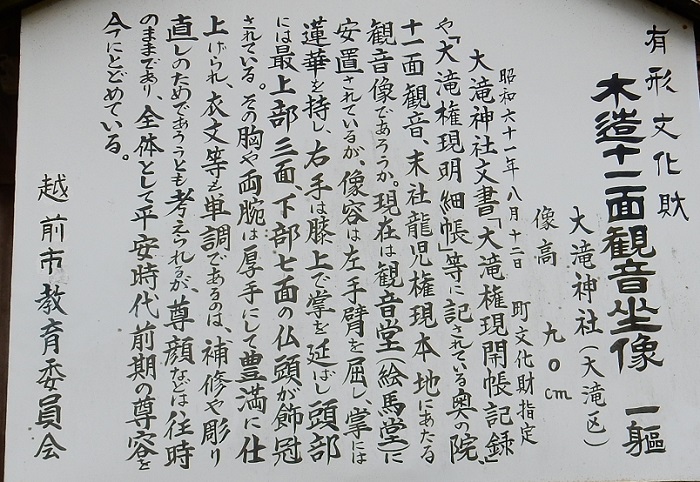 有形文化財
木造十一面観音坐像 一軀
大滝神社(大滝区)
像高 九〇cm
昭和六十一年八月十二日 町文化財指定
大滝神社文書「大滝権現開帳記録」
や「大滝権現明細帳」等に記されている奥の院、
十一面観音、末社龍児権現本地にあたる
観音像であろうか。現在は観音堂(絵馬堂)に
安置されているが、像容は左手臂を屈し、掌には
蓮華を持し、右手は膝上で掌を延ばし頭部
には最上部三面、下部七面の仏頭が飾冠
されている。その胸や両腕は厚手にして豊満に仕
上げられ、衣文等も単調であるのは、補修や彫り
直しのためであろうとも考えられるが、尊顔などは往時
のままであり、全体として平安時代前期の尊容を
今にとどめている。
越前市教育委員会